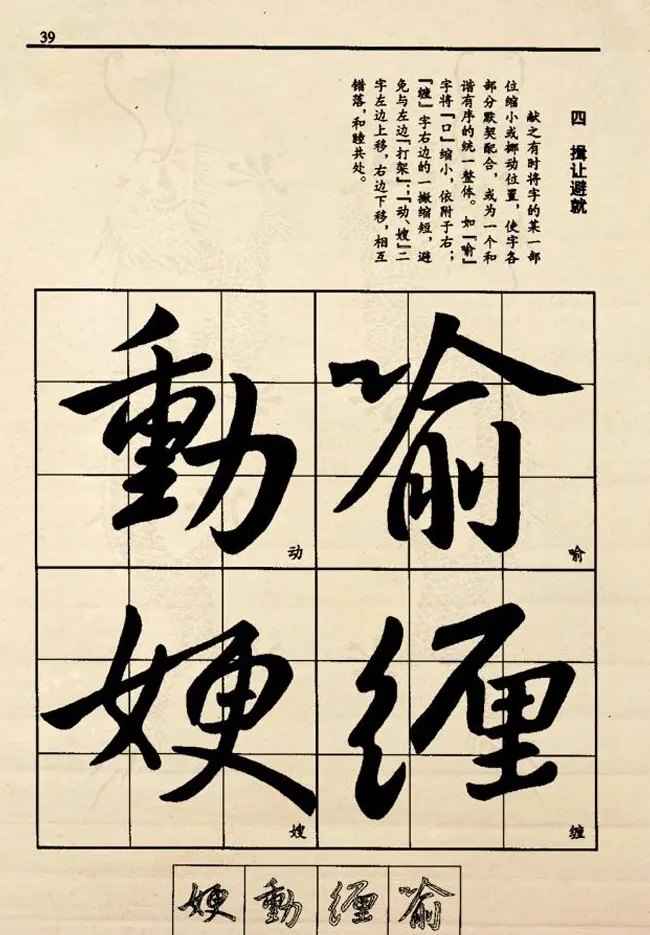 39
四 揖让避就
献之有时将字的某一部
位缩小或挪动位置，使字各
部分默契配合，或为一个和
谐有序的统一整体。如『喻』
字将『口』缩小，依附于右；
『缠』字右边的一撇缩短，避
免与左边『打架』；『动、嫂』二
字左边上移，右边下移，相互
错落，和睦共处。
喻
喻
缠
缠
動
动
㛐
嫂
㛐 動 缠 喻